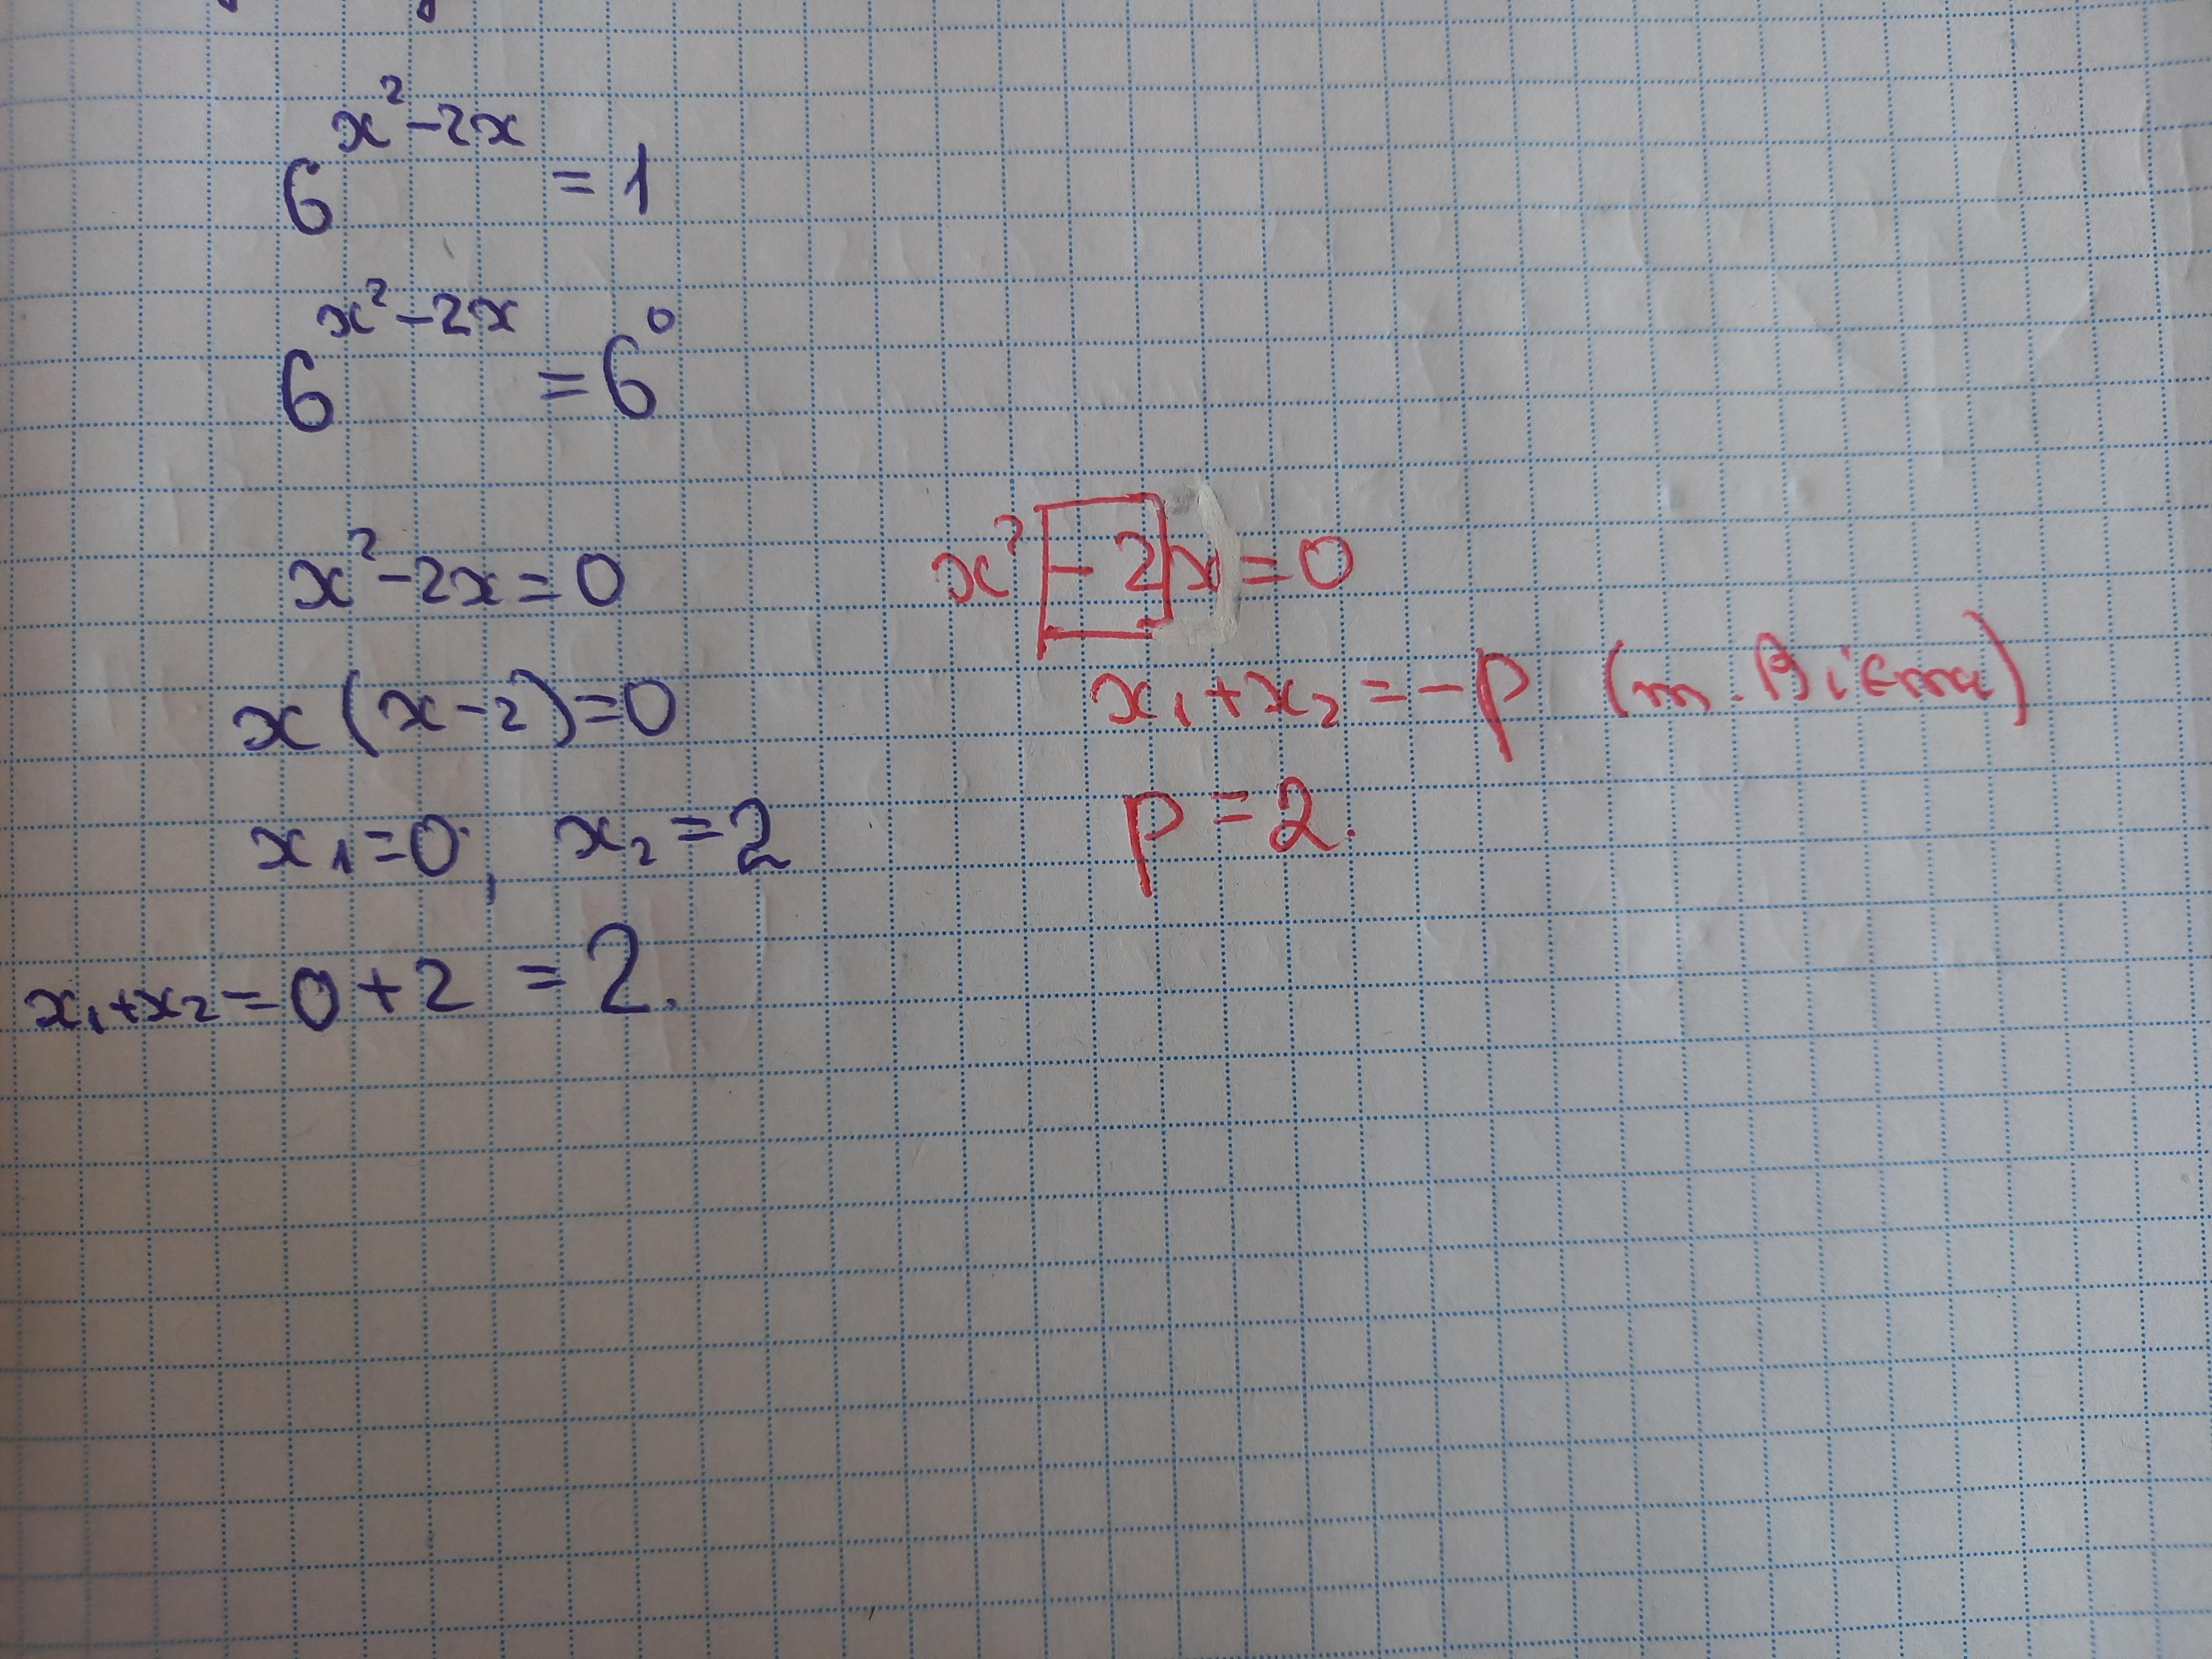 6^{x²-2x} = 1
6^{x²-2x} = 6⁰
x²-2x=0
x(x-2)=0
x₁=0, x₂=2
x₁+x₂=0+2 = 2.
x²-2x=0
x₁+x₂=-p (т. Вієта)
p=2.